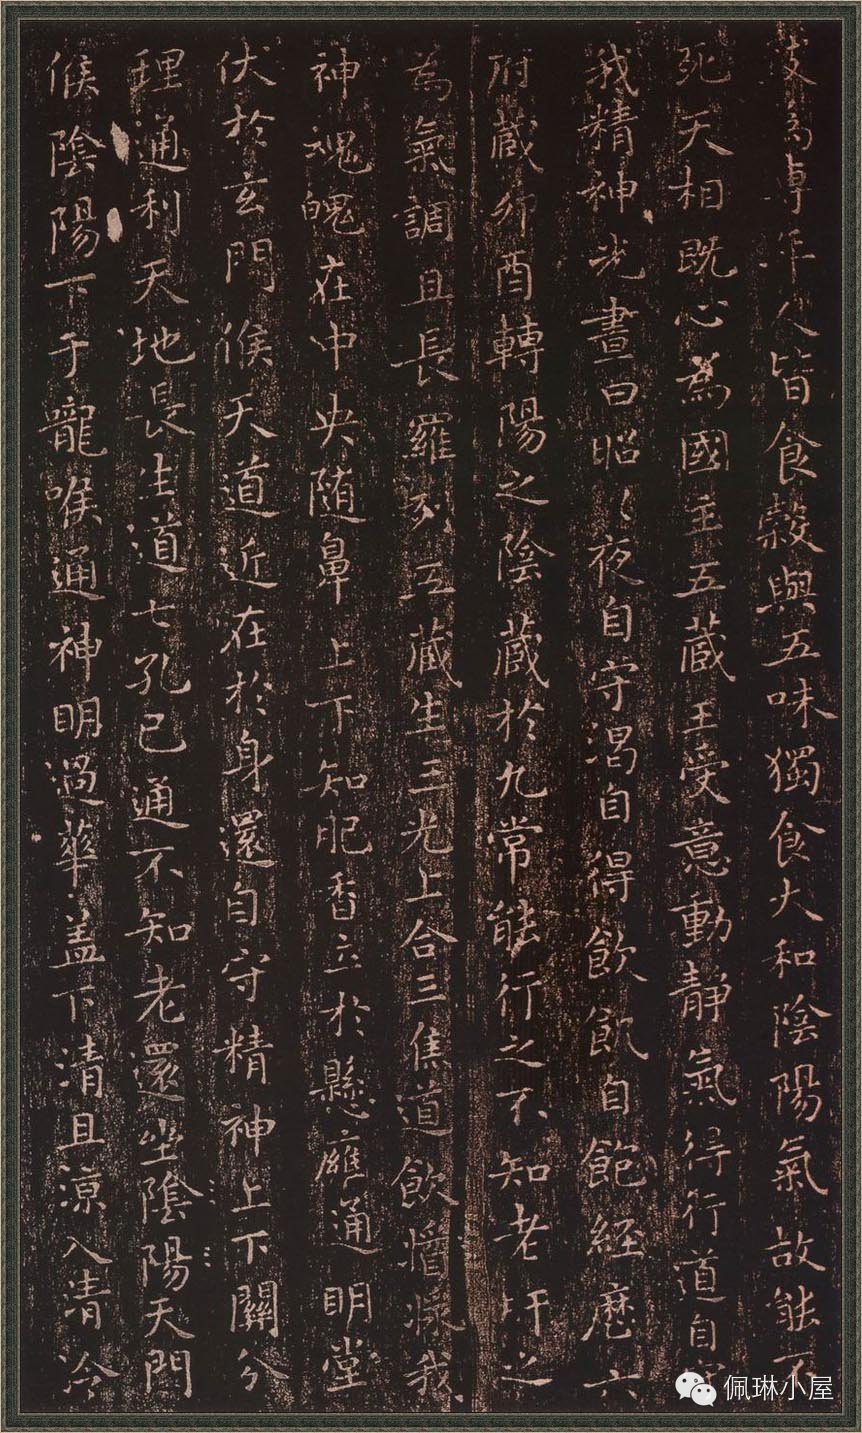 致為專年人皆食穀與五味獨食大和陰陽氣故能不
死天相既心為國主五藏王受意動靜氣得行道自守
我精神光晝日昭〻夜自守渴自得飲飢自飽經歷六
府藏卯酉轉陽之陰藏於九常能行之不知老肝之
為氣調且長羅列五藏生三光上合三焦道飲醬漿我
神魂魄在中央随鼻上下知肥香立於懸膺通明堂
伏於玄門候天道近在於身還自守精神上下關分
理通利天地長生道七孔已通不知老還坐陰陽天門
候陰陽下于嚨喉通神明過華盖下清且涼入清冷
佩琳小屋